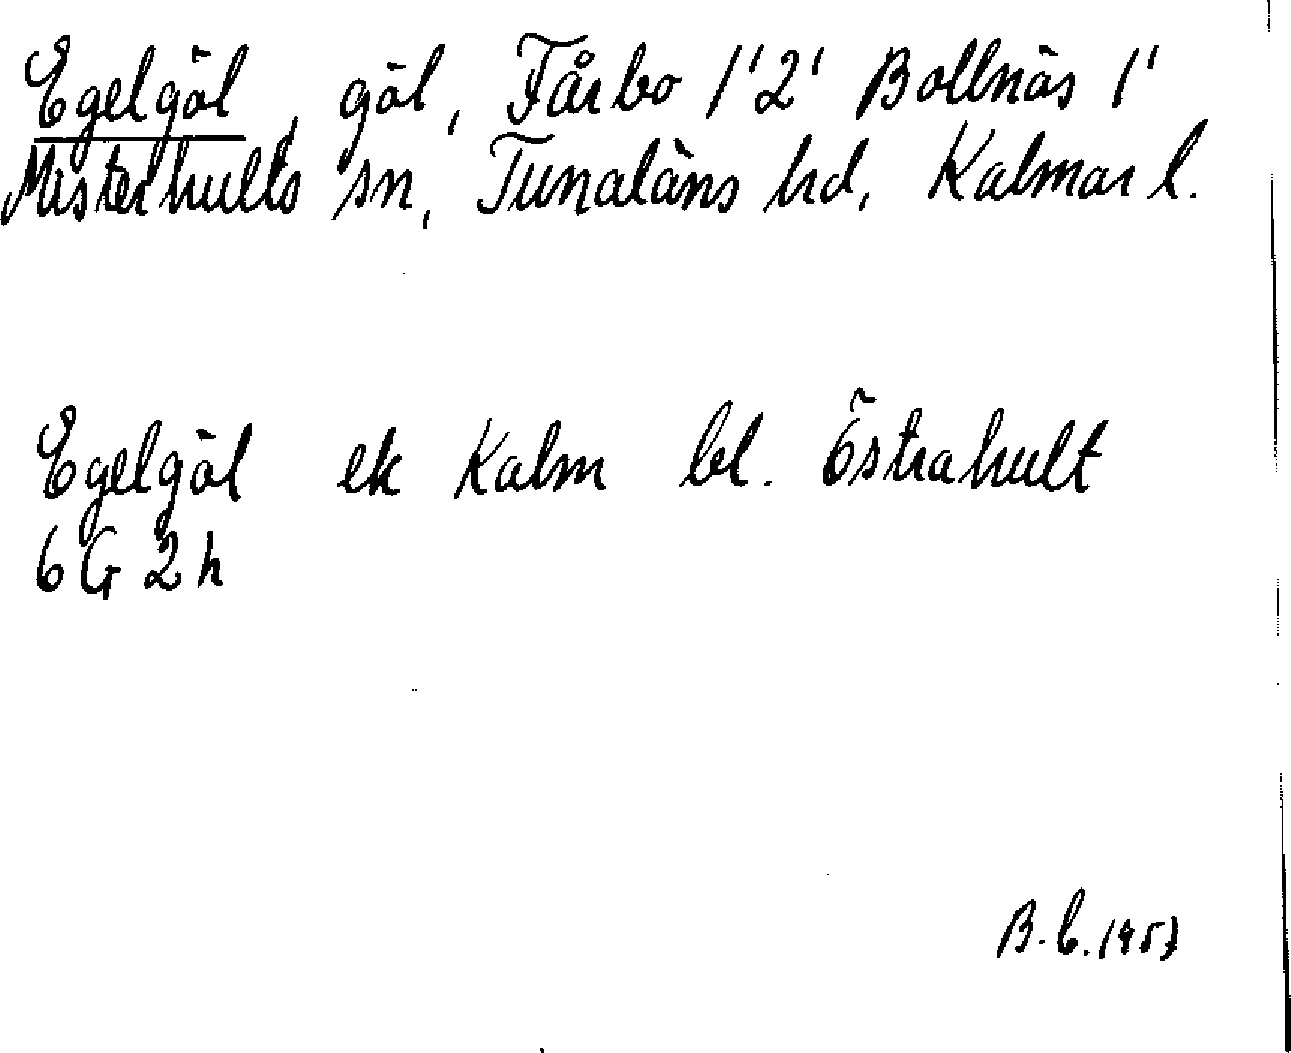 Egelgöl, göl, Fårbo 1'2' Bollnäs 1'
Misterhults sn, Tunaläns hd, Kalmar l.
Egelgöl ek Kalm bl. Östrahult
6G 2h
B. b. 1953